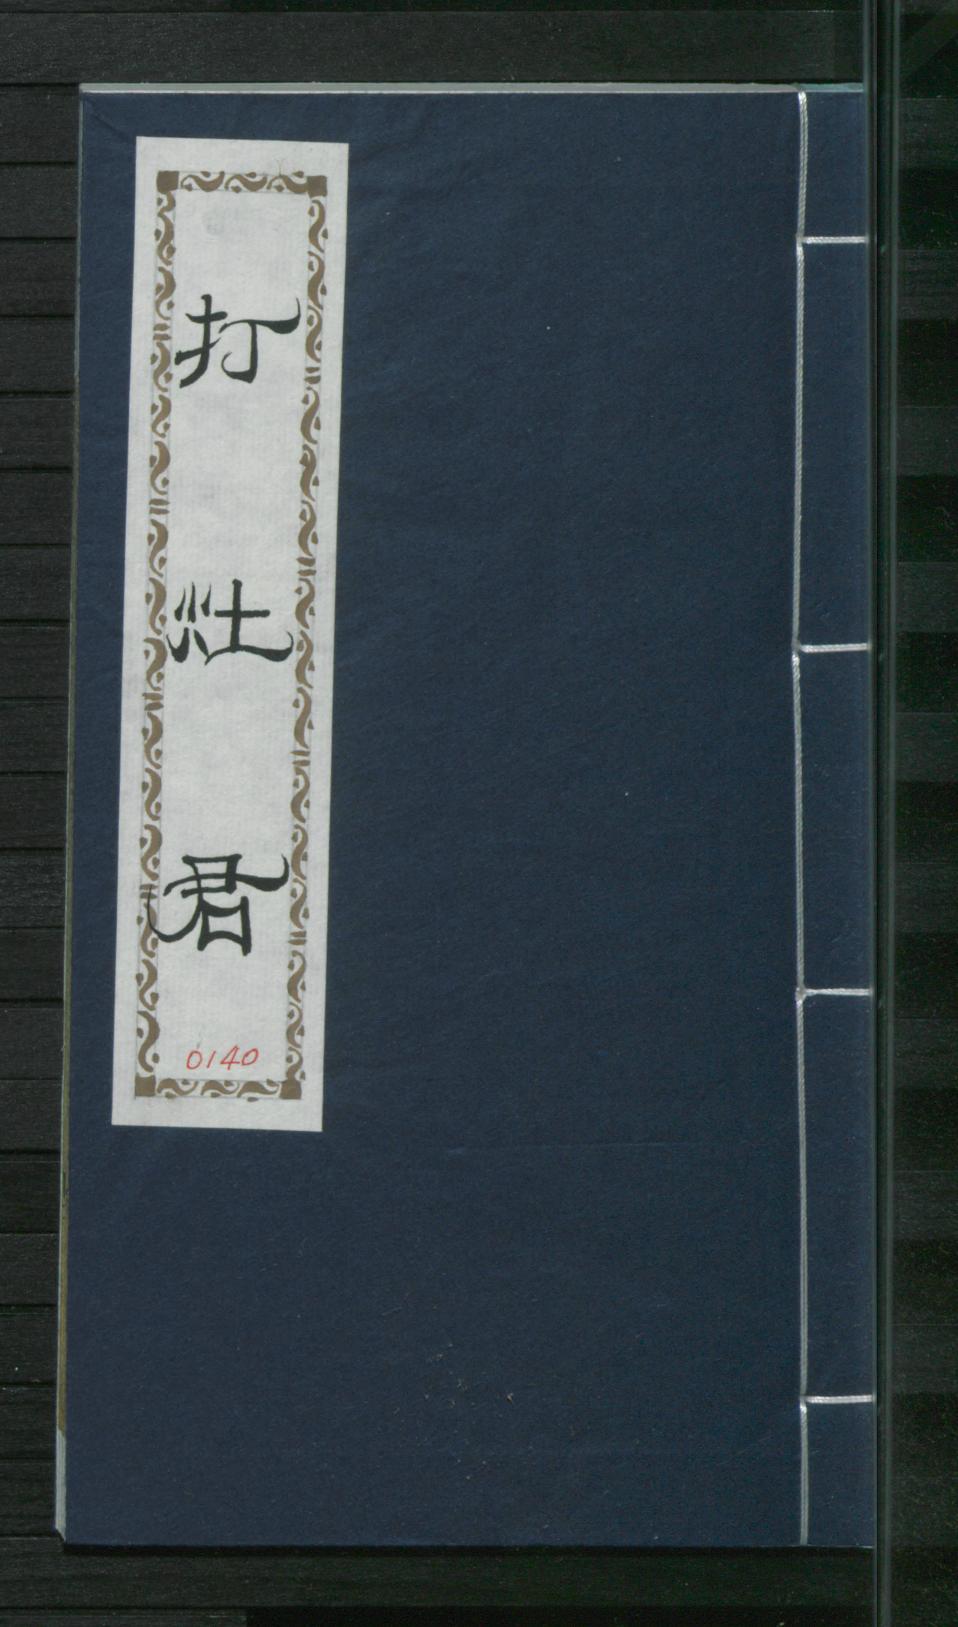 打灶君
0140